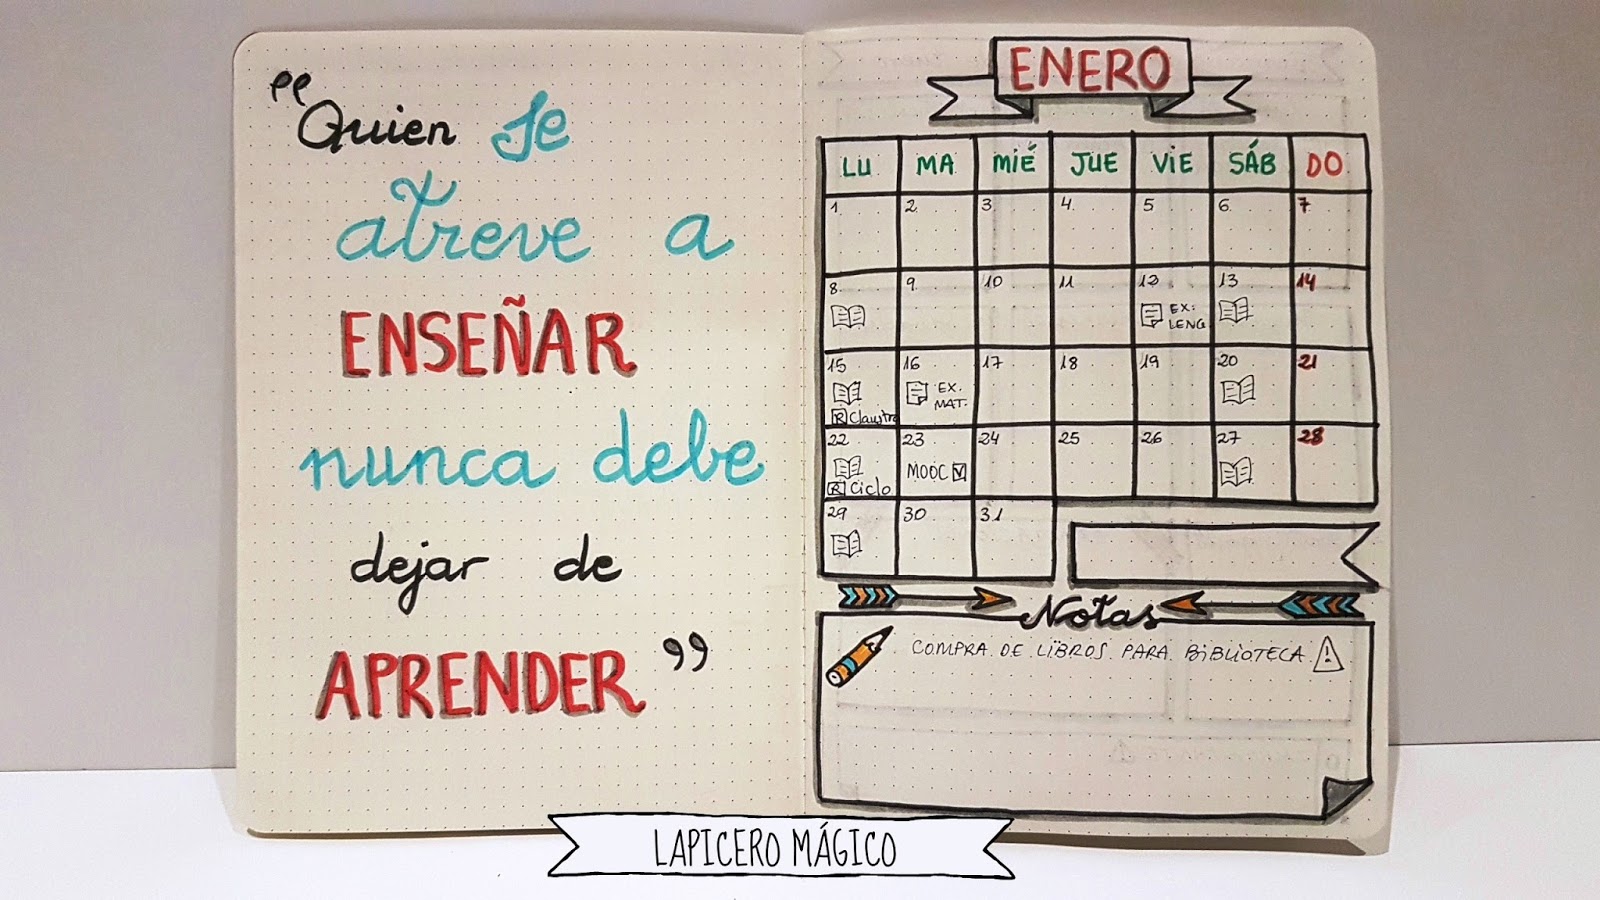 "Quien se
atreve a
ENSEÑAR
nunca debe
dejar de
APRENDER"
ENERO
LU MA MIÉ JUE VIE SÁB DO
1 2 3 4 5 6 7
8 9 10 11 12 13 14
EX.
LENG
15 16 17 18 19 20 21
EX.
MAT.
R Claustro
22 23 24 25 26 27 28
MOOC
R Ciclo
29 30 31
Notas
COMPRA DE LIBROS PARA BIBLIOTECA
LAPICERO MÁGICO